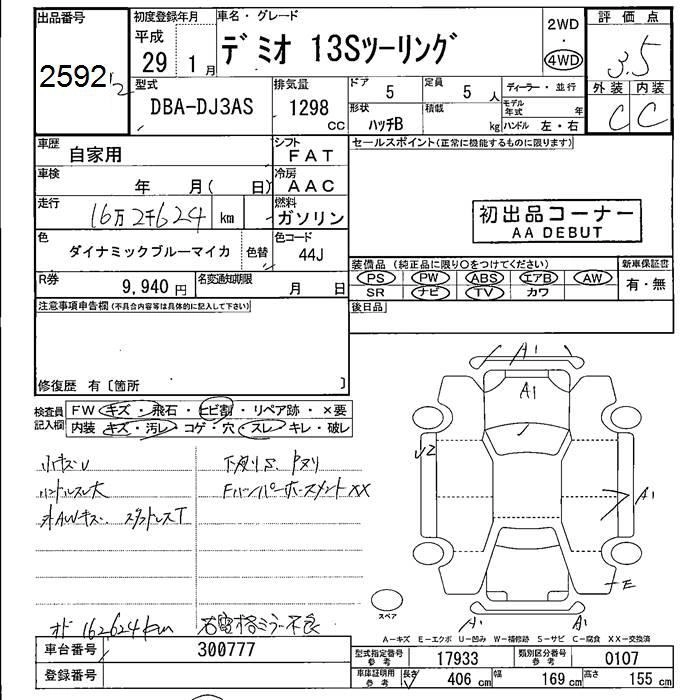 出品番号
2592
初度登録年月
平成
29 1月
車名・グレード
デミオ 13Sツーリング
2WD
・
4WD
評価点
3.5
外装 内装
C C
型式
DBA-DJ3AS
排気量
1298 CC
ドア
5
定員
5 人
形状
ハッチB
積載
kg
ディーラー・並行
モデル年式 年
ハンドル 左・右
車歴
自家用
シフト
FAT
セールスポイント(正常に機能するものに限ります)
車検
年 月( 日)
冷房
AAC
走行
16万2千624 km
燃料
ガソリン
初出品コーナー
AA DEBUT
色
ダイナミックブルーマイカ
色替
色コード
44J
装備品(純正品に限り○をつけてください)
新車保証書
PS PW ABS エアB AW
SR ナビ TV カワ
有・無
R券
9,940 円
名変通知期限
月 日
後日品
注意事項申告欄(不具合内容等は具体的に記入して下さい)
修復歴 有〔箇所 〕
検査員記入欄
FW キズ・飛石・ヒビ割・リペア跡・×要
内装 キズ・汚レ・コゲ・穴・スレ・キレ・破レ
小キズU
ハンドルスレ大
オAWキズ. スタッドレスT
下廻りS. Pヌリ
Fバンパーホースメント××
オド 162624km
右電格ミラー不良
A1
A1
U2
A1
E
A1
A1
スペア
A-キズ E-エクボ U-凹み W-補修跡 S-サビ C-腐食 XX-交換済
車台番号
300777
登録番号
型式指定番号
参考
17933
類別区分番号
参考
0107
車庫証明用
参考
長さ
406 cm
幅
169 cm
高さ
155 cm